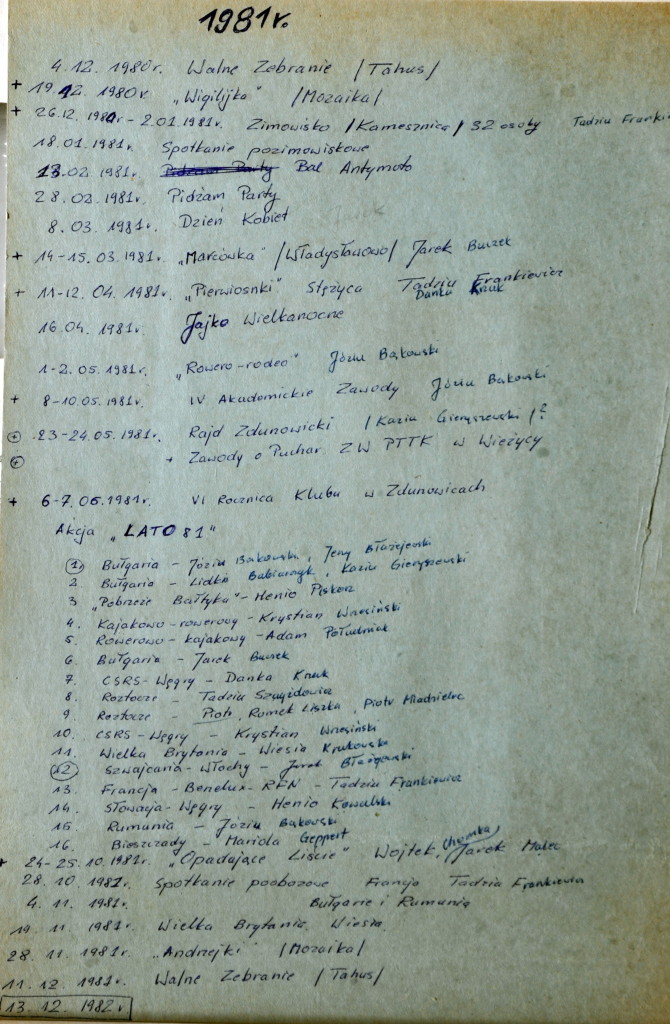 1981r.
4.12. 1980r. Walne Zebranie /Tahus/
+ 19.12. 1980r. „Wigilijka" /Mozaika/
+ 26.12. 1980r - 2.01.1981r. Zimowisko /Kamesznica/ 32 osoby Tadziu Frankie
18.01. 1981r. Spotkanie pozimowiskowe
13.02 1981r. Bal Antymoto
28.02. 1981r. Pidżam Party
8.03. 1981r. Dzień Kobiet
+ 14-15.03.1981r. „Marcówka" /Władysławowo/ Jarek Buszek
+ 11-12.04.1981r. „Pierwiosnki" Stężyca Tadziu Frankiewicz
Danka Kruk
16.04. 1981r. Jajko Wielkanocne
1-2.05.1981r. „Rowero-rodeo" Józiu Bąkowski
+ 8-10.05.1981r. IV Akademickie Zawody Józiu Bąkowski
+ 23-24.05.1981r. Rajd Zdunowicki /Kaziu Gieryszewski/?
+ + Zawody o Puchar ZW PTTK w Wieżycy
+ 6-7.06.1981r. VI Rocznica Klubu w Zdunowicach
Akcja „LATO 81"
1 Bułgaria - Józiu Bąkowski, Jerzy Błażejewski
2 Bułgaria - Lidka Kaziu Gieryszewski
3 „Pobrzeże Bałtyku" - Henio Piskorz
4. Kajakowo-rowerowy - Krystian Wrzesiński
5. Rowerowo-kajakowy - Adam Południak
6. Bułgaria - Jarek Buszek
7. CSRS-Węgry - Danka Kruk
8. Roztocze - Tadziu
9. Roztocze - Piotr, Romek Liszka, Piotr
10. CSRS-Węgry - Krystian Wrzesiński
11. Wielka Brytania - Wiesia Krukowska
12 Szwajcaria-Włochy - Jurek
13. Francja - Benelux - RFN - Tadziu Frankiewicz
14. Słowacja-Węgry - Henio Kowalski
15. Rumunia - Józiu Bąkowski
16. Bieszczady - Mariola Geppert
+ 24-25.10.1981r. „Opadające Liście" Wojtek Chomka, Jarek Malec
28.10.1981r. Spotkanie poobozowe Francja Tadziu Frankiewicz
4.11. 1981r. Bułgaria i Rumunia
19.11. 1981r. Wielka Brytania Wiesia
28.11. 1981r. „Andrzejki" /Mozaika/
11.12. 1981r. Walne Zebranie /Tahus/
13.12. 1982r.